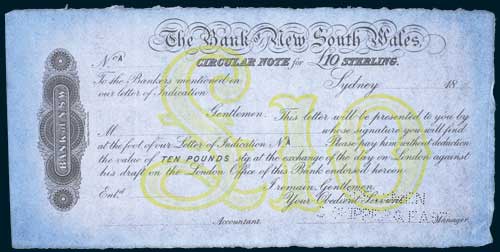 The Bank of New South Wales.
No. A
CIRCULAR NOTE for £10 STERLING.
To the Bankers mentioned in
our letter of Indication
Sydney 18
Gentlemen. This letter will be presented to you by
M whose signature you will find
at the foot of our Letter of Indication No. A Please pay him without deduction
the value of TEN POUNDS stg at the exchange of the day on London against
his draft on the London Office of this Bank endorsed hereon.
I remain, Gentlemen,
Entd. Your Obedient Servant
Accountant. Manager.
£10
BANK OF N.S.W.
SPECIMEN